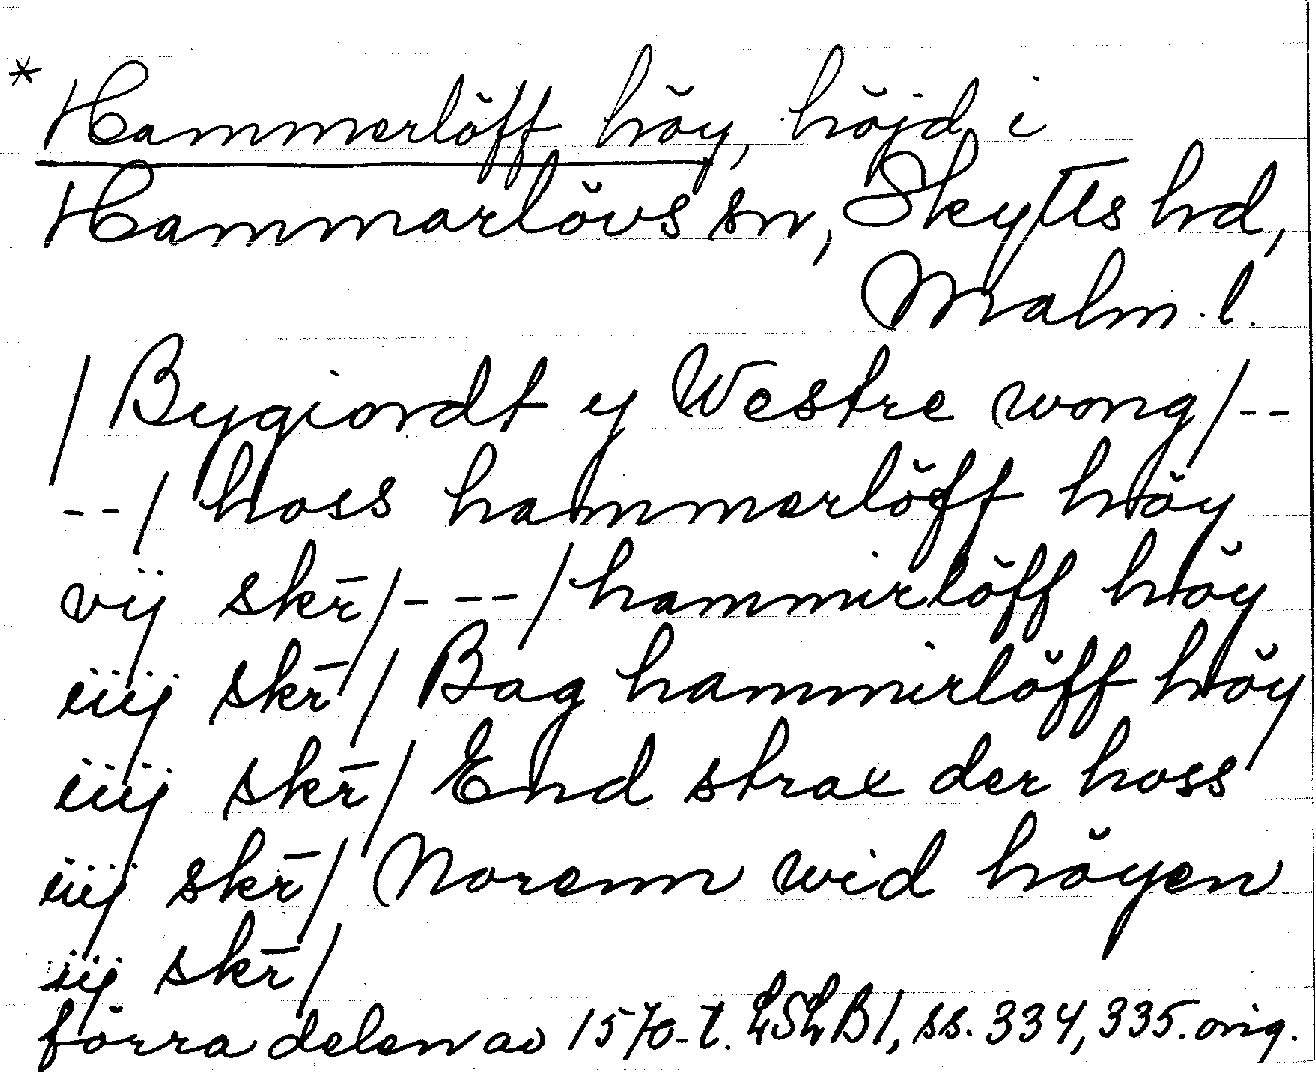 * Hammerlöff höy, höjd i
Hammarlövs sn, Skytts hd,
Malm. l.
/ Bygiordt y Westre wong / --
-- / hoss hammerlöff höy
vij skr̄ / --- / hammirlöff höy
iiij skr̄ / Bag hammirlöff höy
iiij skr̄ / End strax der hoss
iiij skr̄ / Norenn wid höyen
iij skr̄ /
förra delen av 1570-t. LSLB1, ss. 334, 335. orig.